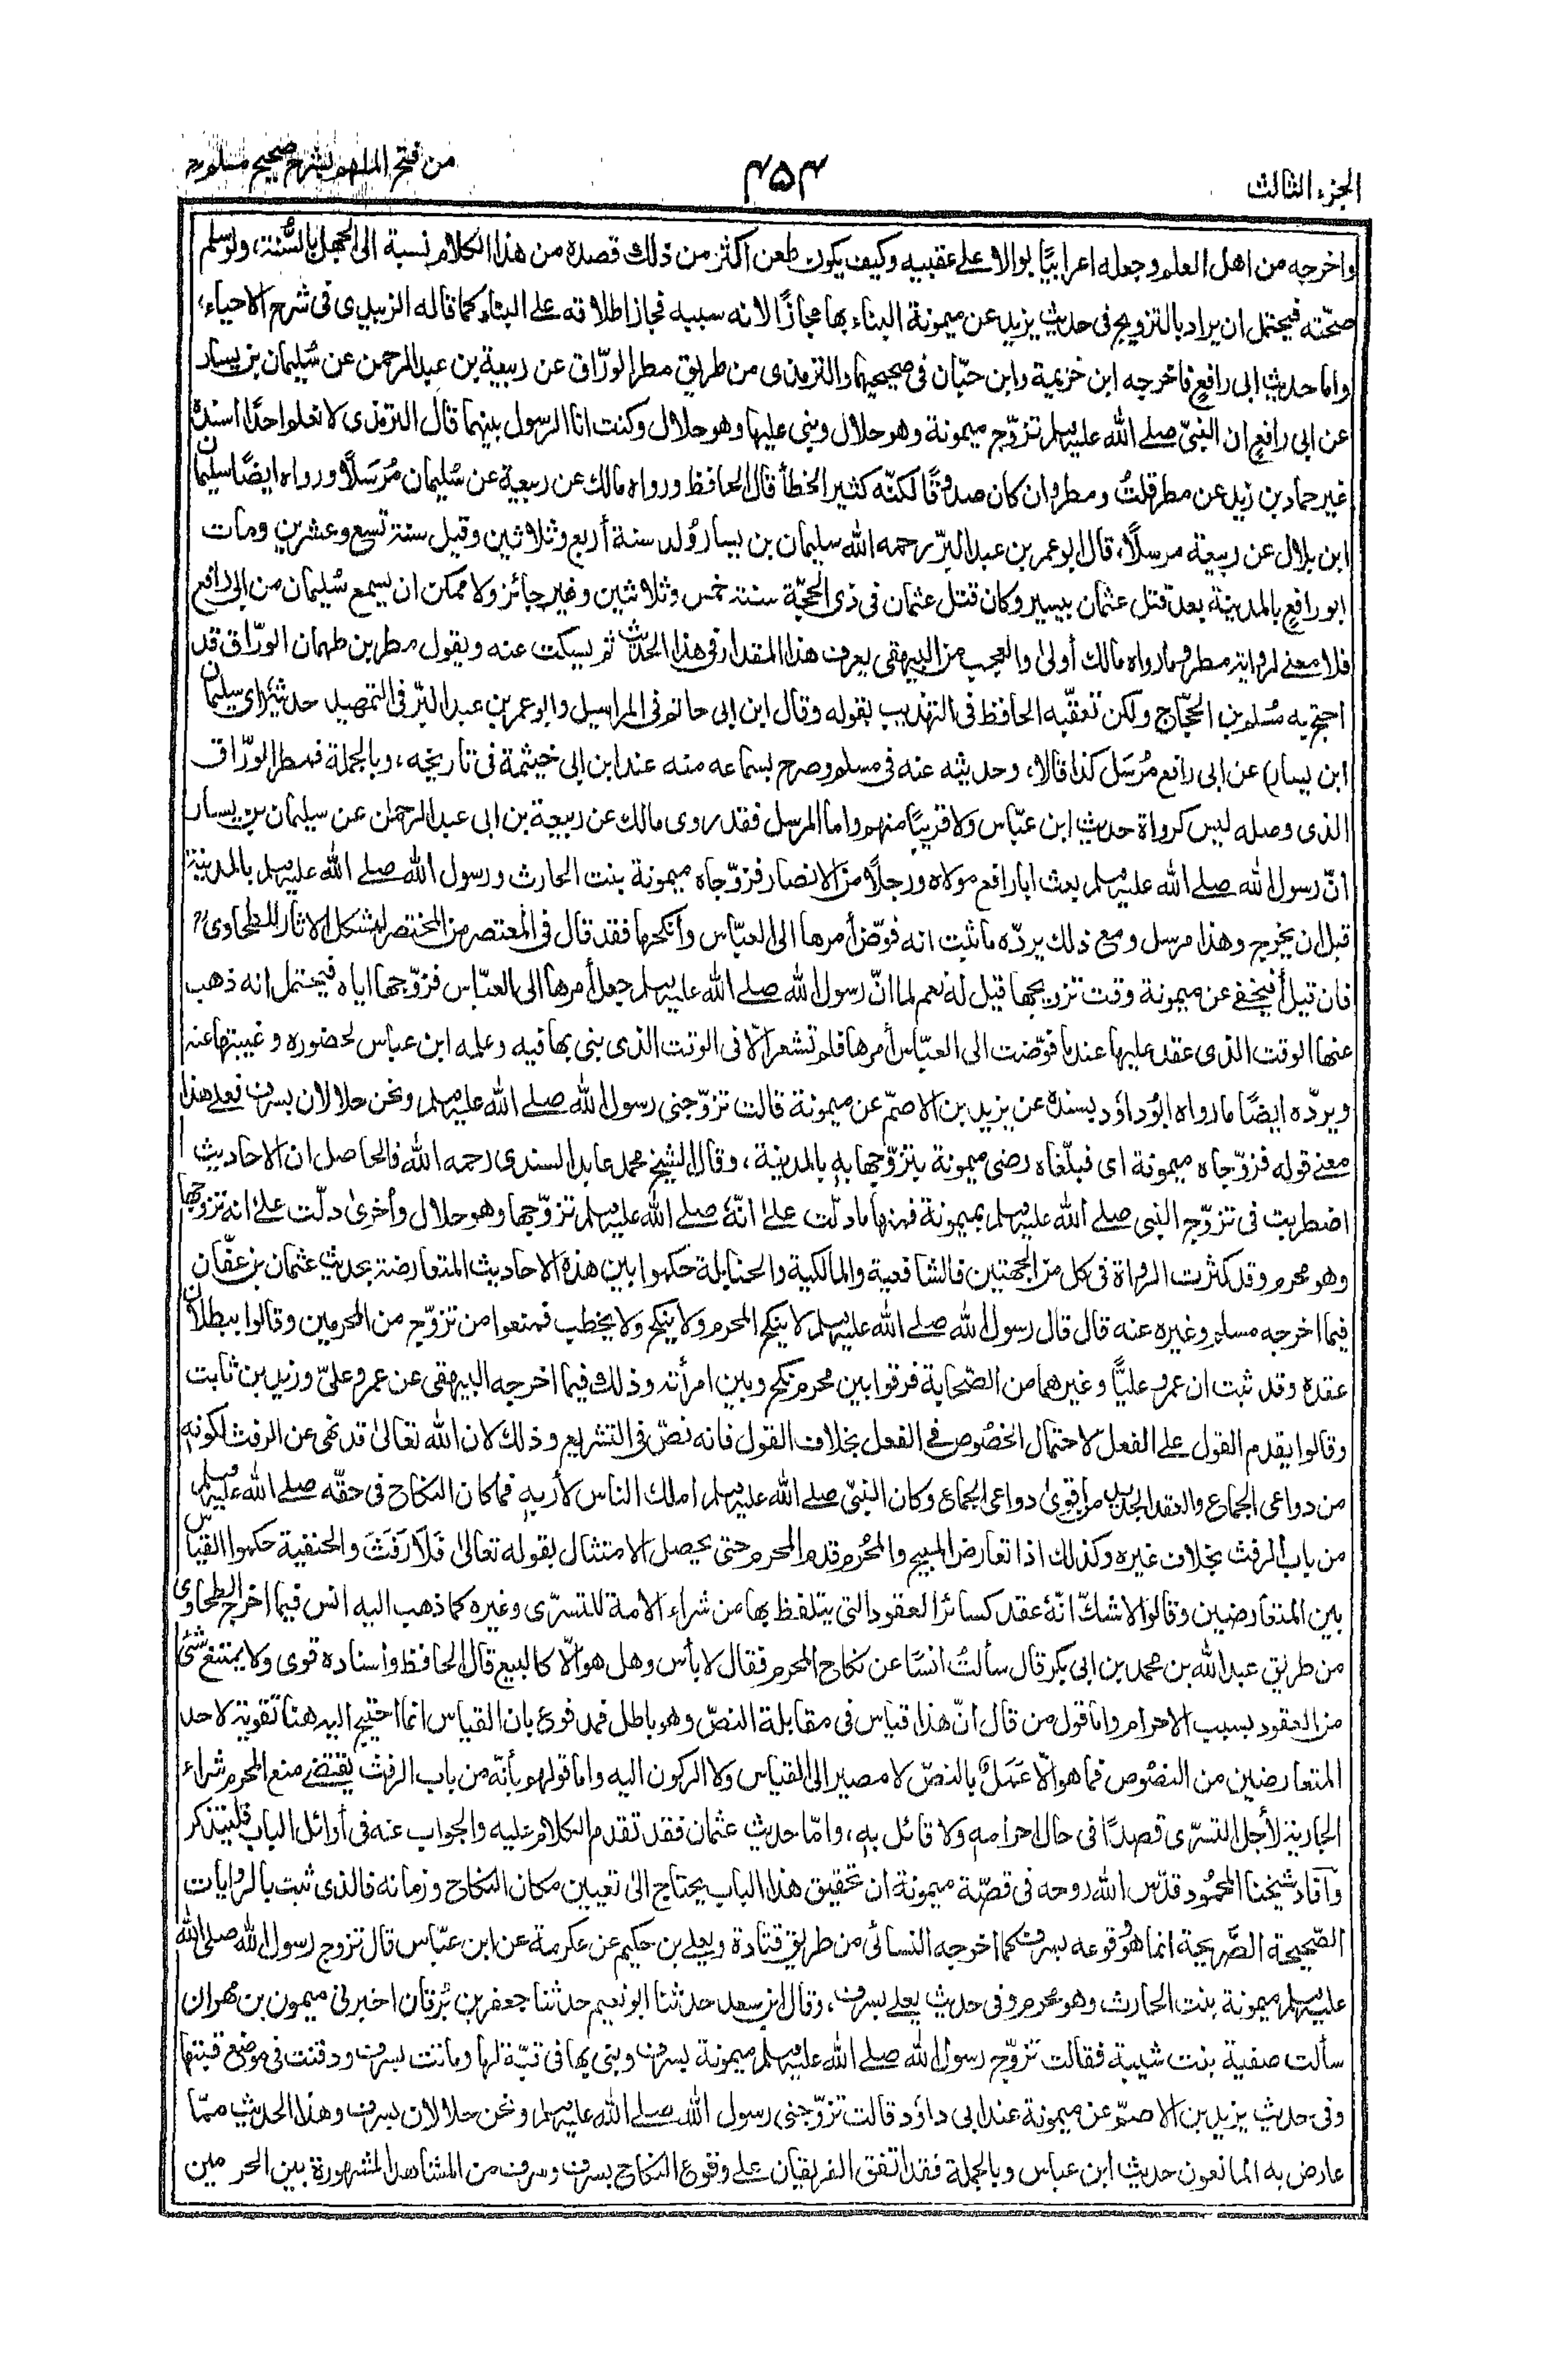 الجزء الثالث
٤٥٣
من فتح الملهم بشرح صحيح مسلم
واخرجه من اهل العلم وجعله اعرابيًّا بوالا على عقبيه وكيف يكون طعن اكثر من ذلك قصده من هذا الكلام نسبة الى الجهل بالسُّنة، ولو سلم
صحّته فيحتمل ان يراد بالتزويج فى حديث يزيد عن ميمونة البناء بها مجازًا لانه سببه فجاز اطلاقه على البناء كما قاله الزبيدى فى شرح الاحياء،
واما حديث ابى رافع فاخرجه ابن خزيمة وابن حبّان فى صحيحيهما والترمذى من طريق مطر الورّاق عن ربيعة بن عبد الرحمن عن سُليمان بن يسار
عن ابى رافع ان النبىّ صلى الله عليه وسلم تزوّج ميمونة وهو حلال وبنى عليها وهو حلال وكنت انا الرسول بينهما قال الترمذى لا نعلم احدًا اسنده
غير حماد بن زيد عن مطر قلتُ ومطر وان كان صدوقًا لكنّه كثير الخطأ قال الحافظ ورواه مالك عن ربيعة عن سُليمان مُرسَلًا ورواه ايضًا سليمان
ابن بلال عن ربيعة مرسلًا، قال ابو عمر بن عبد البرّ رحمه الله سليمان بن يسار وُلد سنة أربع وثلاثين وقيل سنة تسع وعشرين ومات
ابو رافع بالمدينة بعد قتل عثمان بيسير وكان قتل عثمان فى ذى الحجّة سنة خمس وثلاثين وغير جائز ولا ممكن ان يسمع سُليمان من ابى رافع
فلا معنى لرواية مطر وما رواه مالك أولىٰ والعجب من البيهقى يعرف هذا المقدار فى هذا الحديث ثم يسكت عنه ويقول مطر بن طهمان الورّاق قد
احتج به مُسلم بن الحجّاج ولكن تعقّبه الحافظ فى التهذيب بقوله وقال ابن ابى حاتم فى المراسيل وابو عمر بن عبد البرّ فى التمهيد حديثه (اى سليمان
ابن يسار) عن ابى رافع مُرسَل كذا قالا، وحديثه عنه فى مسلم وصرح بسماعه منه عند ابن ابى خيثمة فى تاريخه، وبالجملة فمطر الورّاق
الذى وصله ليس كرواة حديث ابن عبّاس ولا قريبًا منهم واما المرسل فقد روى مالك عن ربيعة بن ابى عبد الرحمٰن عن سليمان بن يسار
انّ رسول الله صلى الله عليه وسلم بعث ابا رافع مولاه ورجلًا من الانصار فزوّجاه ميمونة بنت الحارث ورسول الله صلى الله عليه وسلم بالمدينة
قبل ان يخرج وهذا مرسل ومع ذلك يردّه ما ثبت انه فوّض أمرها الى العبّاس وأنكحها فقد قال فى المعتصر من المختصر لمشكل الاثار للطحاوى
فان قيل أفيخفى عن ميمونة وقت تزويجها قيل له نعم لما انّ رسول الله صلى الله عليه وسلم جعل أمرها الى العبّاس فزوّجها اياه فيحتمل انه ذهب
عنها الوقت الذى عقد عليها عندما فوّضت الى العبّاس أمرها فلم تشعر الّا فى الوقت الذى بنى بها فيه وعلمه ابن عباس لحضوره وغيبتها عنه
ويردّه ايضًا ما رواه ابو داؤد بسنده عن يزيد بن الاصمّ عن ميمونة قالت تزوّجنى رسول الله صلى الله عليه وسلم ونحن حلالان بسرف فعلى هذا
معنى قوله فزوّجاه ميمونة اى فبلّغاه رضى ميمونة بتزوّجها به بالمدينة، وقال الشيخ محمد عابد السندى رحمه الله فالحاصل ان الاحاديث
اضطربت فى تزوّج النبى صلى الله عليه وسلم بميمونة فمنها ما دلّت على انّه صلى الله عليه وسلم تزوّجها وهو حلال وأخرىٰ دلّت على انه تزوجها
وهو محرم وقد كثرت الرواة فى كل من الجهتين فالشافعية والمالكية والحنابلة حكموا بين هذه الاحاديث المتعارضة بحديث عثمان بن عفّان
فيما اخرجه مسلم وغيره عنه قال قال رسول الله صلى الله عليه وسلم لا ينكح المحرم ولا ينكح ولا يخطب فمنعوا من تزوّج من المحرمين وقالوا ببطلان
عقده وقد ثبت ان عمر وعليًّا وغيرهما من الصّحابة فرقوا بين محرم نكح وبين امرأته وذلك فيما اخرجه البيهقى عن عمر وعلىّ وزيد بن ثابت
وقالوا يقدم القول على الفعل لاحتمال الخصُوص فى الفعل بخلاف القول فانه نصّ فى التشريع وذلك لان الله تعالىٰ قد نهى عن الرفث لكونه
من دواعى الجماع والعقد الجديد من اقوىٰ دواعى الجماع وكان النبىّ صلى الله عليه وسلم املك الناس لأربه فما كان النكاح فى حقّه صلى الله عليه وسلم
من باب الرفث بخلاف غيره وكذلك اذا تعارض المبيح والمحُرم قدم المحرم حتى يحصل الامتثال بقوله تعالىٰ فَلَا رَفَثَ والحنفية حكموا القياس
بين المتعارضين وقالوا لا شكّ انّه عقد كسائر العقود التى يتلفظ بها من شراء الامة للتسرّى وغيره كما ذهب اليه انس فيما اخرج الطحاوى
من طريق عبد الله بن محمد بن ابى بكر قال سألتُ انسًا عن نكاح المحرم فقال لا بأس وهل هو الّا كالبيع قال الحافظ واسناده قوى ولا يمتنع شئ
من العقود بسبب الاحرام واما قول من قال انّ هذا قياس فى مقابلة النصّ وهو باطل فمدفوع بان القياس انما احتيج اليه هنا تقوية لاحد
المتعارضين من النصُوص فما هو الّا عَمَلٌ بالنصّ لا مصير الى القياس ولا الركون اليه واما قولهم بأنّه من باب الرفث يقتضى منع المحرم شراء
الجارية لأجل التسرّى قصدًا فى حال احرامه ولا قائل به، وامّا حديث عثمان فقد تقدم الكلام عليه والجواب عنه فى أوائل الباب فليتذكر
وآفاد شيخنا المحمُود قدّس الله روحه فى قصّة ميمونة ان تحقيق هذا الباب يحتاج الىٰ تعيين مكان النكاح وزمانه فالذى ثبت بالروايات
الصّحيحة الصَّريحة انما هو وقوعه بسرف كما اخرجه النسائى من طريق قتادة ويعلى بن حكيم عن عكرمة عن ابن عبّاس قال تزوج رسول الله صلى الله
عليه وسلم ميمونة بنت الحارث وهو محرم وفى حديث يعلى بسرف، وقال ابن سعد حدثنا ابو نعيم حدثنا جعفر بن بُرقان اخبرنى ميمون بن مهران
سألت صفية بنت شيبة فقالت تزوّج رسول الله صلى الله عليه وسلم ميمونة بسرف وبنى بها فى قبّة لها وماتت بسرف ودفنت فى موضع قبتها
وفى حديث يزيد بن الاصمّ عن ميمونة عند ابى داؤد قالت تزوّجنى رسول الله صلى الله عليه وسلم ونحن حلالان بسرف وهذا الحديث ممّا
عارض به المانعون حديث ابن عباس وبالجملة فقد اتفق الفريقان على وقوع النكاح بسرف وسرف من المشاهد المشهورة بين الحرمين